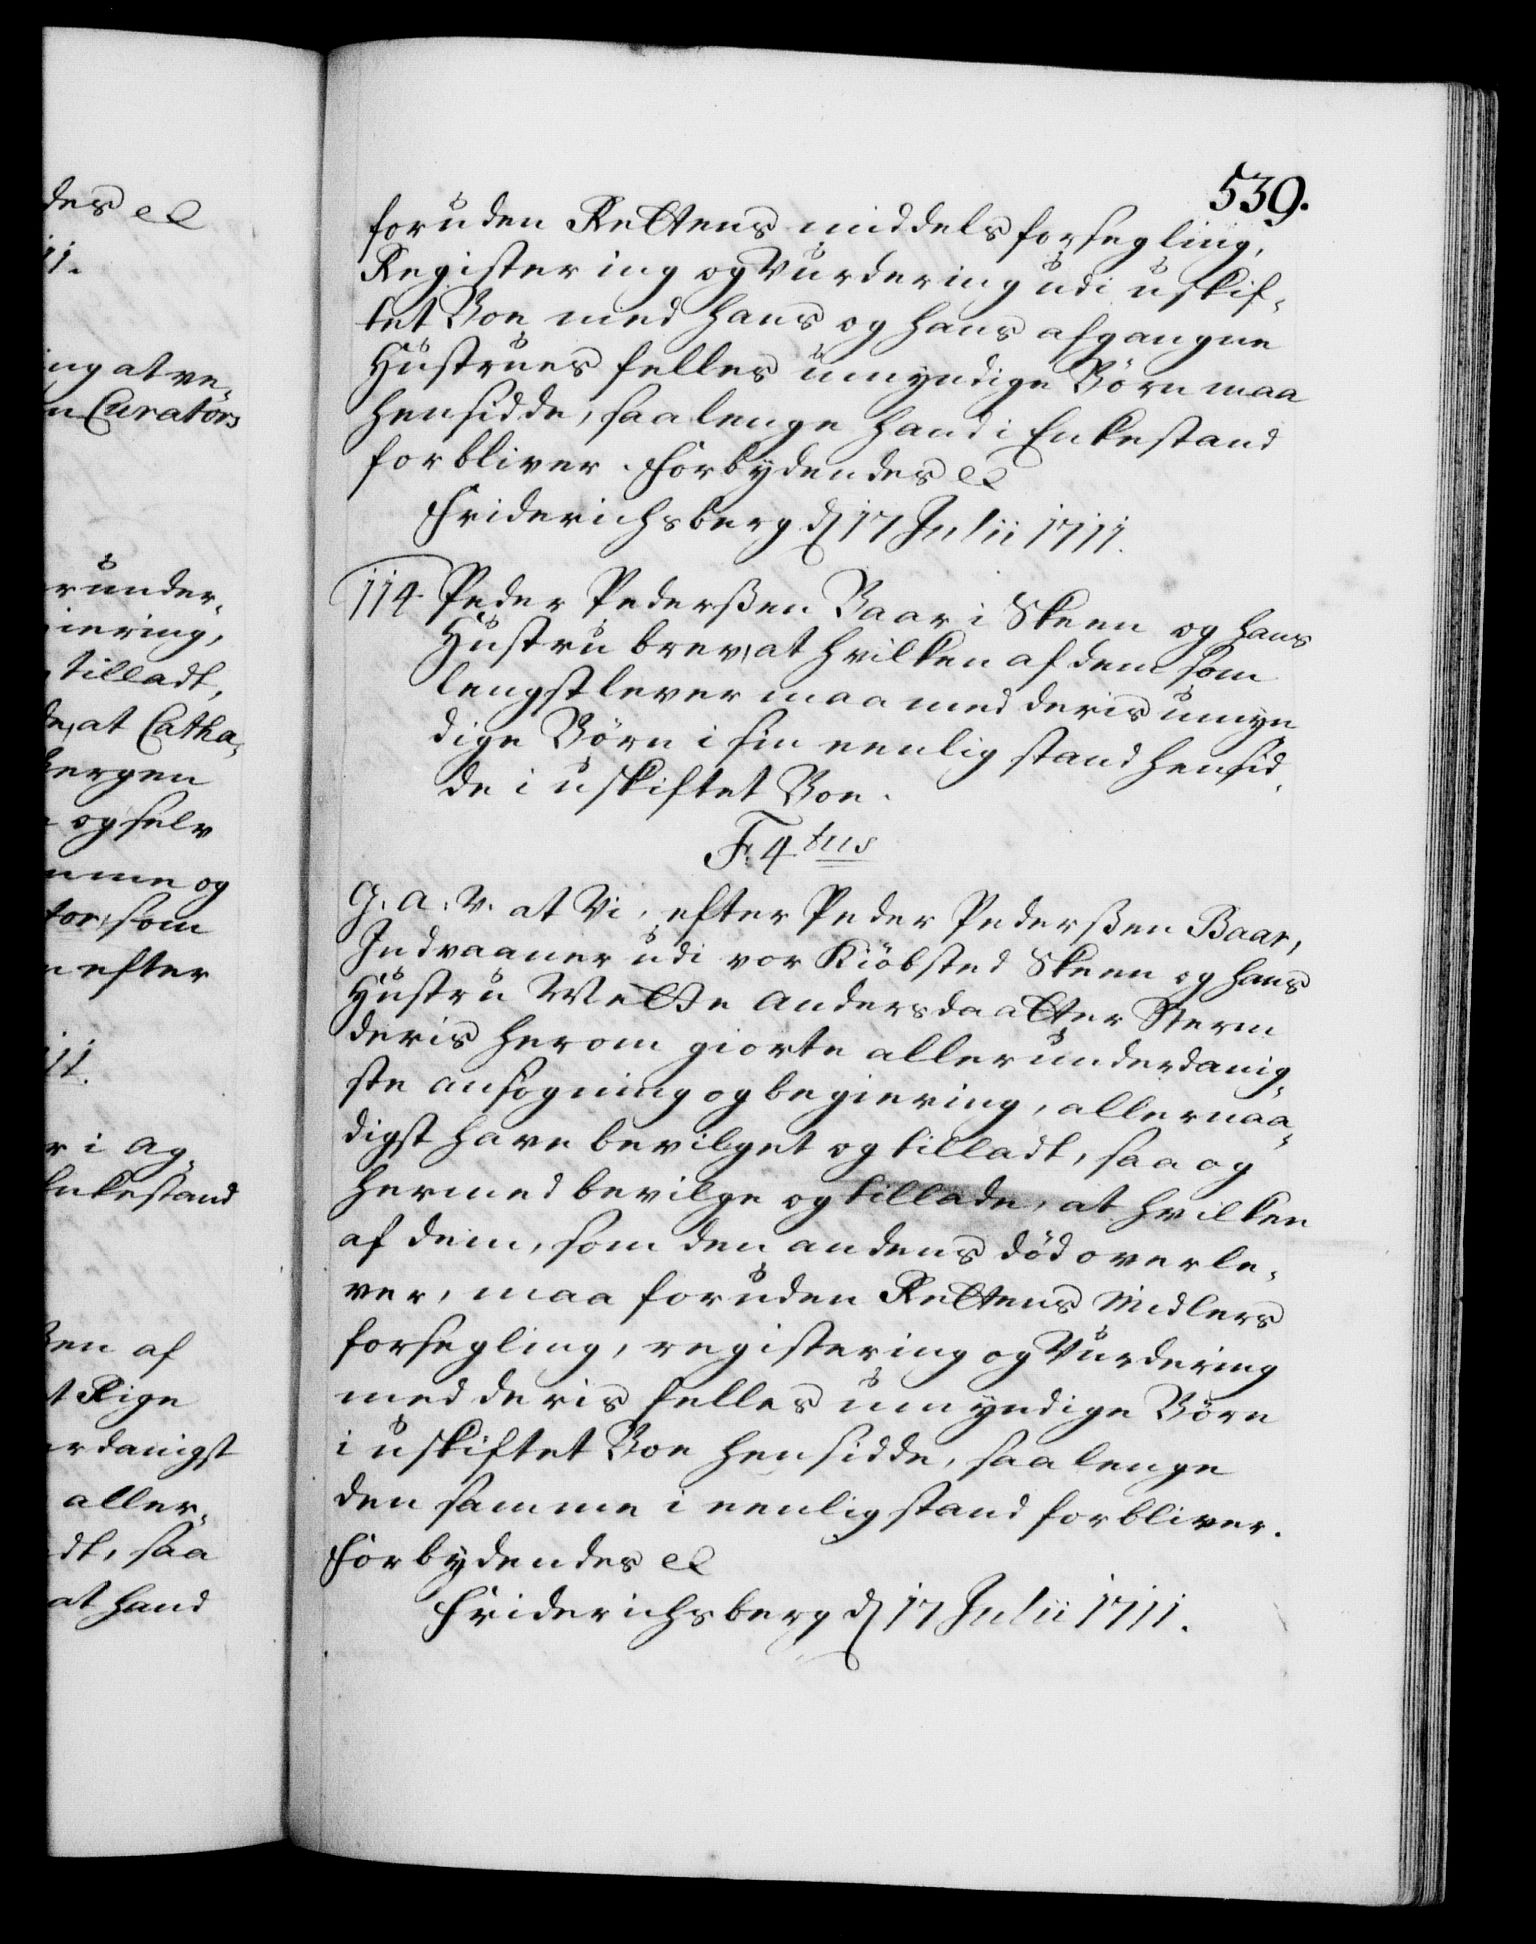 des etc
11.
ing at ve¸
n Curators
runder¸
iering,
tilladt,
de, at Catha¸
bergen
og selv
mme og
tor, som
n efter
11.
r i Ag¸
Enkestand
ßen af
t Rige
erdanigst
aller¸
dt, saa
at hand
539.
foruden Rettens middels forsegling,
Registering og Vurdering udi uskif¸
tet Boe med hans og hans afgangne
Hustrues felles umyndige Börn maa
hensidde, saalenge hand i Enkestand
forbliver. Forbydendes etc
Friderichsberg d 17 Julii 1711.
114. Peder Pederßen Baar i Skeen og hans
Hustru brev, at hvilken af dem som
lengst lever maa med deris umyn
dige Börn i sin eenlig stand hensid¸
de i uskiftet Boe.
F. 4tus
G. A. V. at Vi, efter Peder Pederßen Baar,
Indvaaner udi vor Kiöbsted Skeen og hans
Hustru Mette Andersdaatter Sterm
deris herom giorte allerunderdanig¸
ste ansögning og begiering, allernaa¸
digst have bevilget og tilladt, saa og
hermed bevilge og tillade, at hvilken
af dem, som den andens död overle¸
ver, maa foruden Rettens Midlers
forsegling, registering og Vurdering
med deris felles umyndige Börn
i uskiftet Boe hensidde, saalenge
den samme i eenlig stand forbliver.
Forbydendes etc
Friderichsberg d 17 Julii 1711.